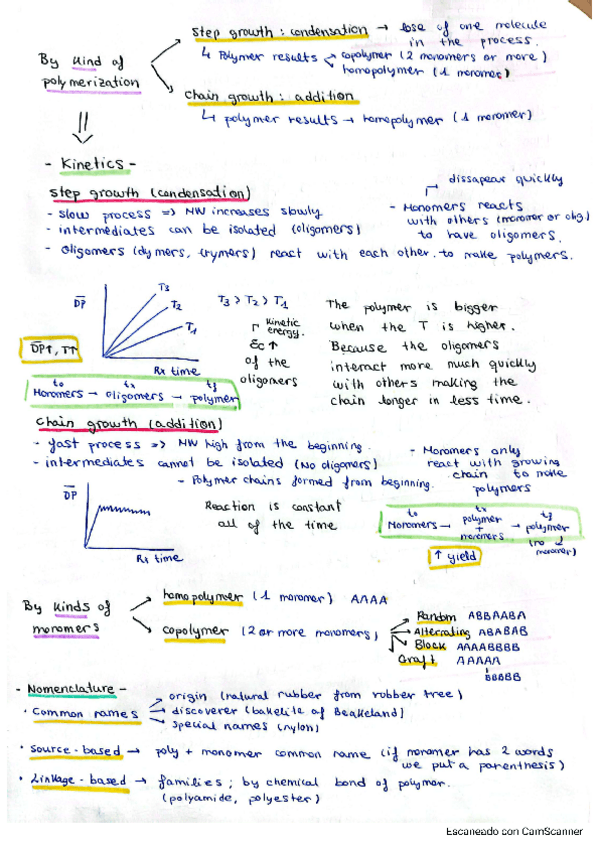 step growth : condensation → lose of one molecule
in the process.
↳ Polymer results → copolymer (2 monomers or more)
homopolymer (1 monomer)
By kind of
polymerization
chain growth : addition
↳ polymer results → homopolymer (1 monomer)
- Kinetics -
step growth (condensation)
dissapear quickly
- slow process => MW increases slowly
- intermediates can be isolated (oligomers)
- Oligomers (dymers, trymers) react with each other. to make polymers.
- Monomers reacts
with others (monomer or olig.)
to have oligomers.
DP
T3
T2
T1
Rx time
DP↑, T↑
T3 > T2 > T1
kinetic
energy.
Ec ↑
of the
oligomers
The polymer is bigger
when the T is higher.
Because the oligomers
interact more much quickly
with others making the
chain longer in less time.
to tx tf
Monomers → oligomers → polymer
chain growth (addition)
- fast process => MW high from the beginning.
- intermediates cannot be isolated (No oligomers)
- Polymer chains formed from beginning.
- Monomers only
react with growing
chain to make
polymers
DP
Rx time
Reaction is constant
all of the time
to tx tf
Monomers → polymer + monomers → polymer
(no monomer)
↑ yield
By kinds of
monomers
homopolymer (1 monomer) AAAA
copolymer (2 or more monomers)
Random ABBAABA
Alterrating ABABAB
Block AAAABBBB
Graft AAAAA
BBBBB
- Nomenclature -
· Common names
origin (natural rubber from rubber tree)
discoverer (bakelite of Beakeland)
special names (nylon)
· Source-based → poly + monomer common name (if monomer has 2 words
we put a parenthesis)
· Linkage-based → families ; by chemical bond of polymer.
(polyamide, polyester)
Escaneado con CamScanner